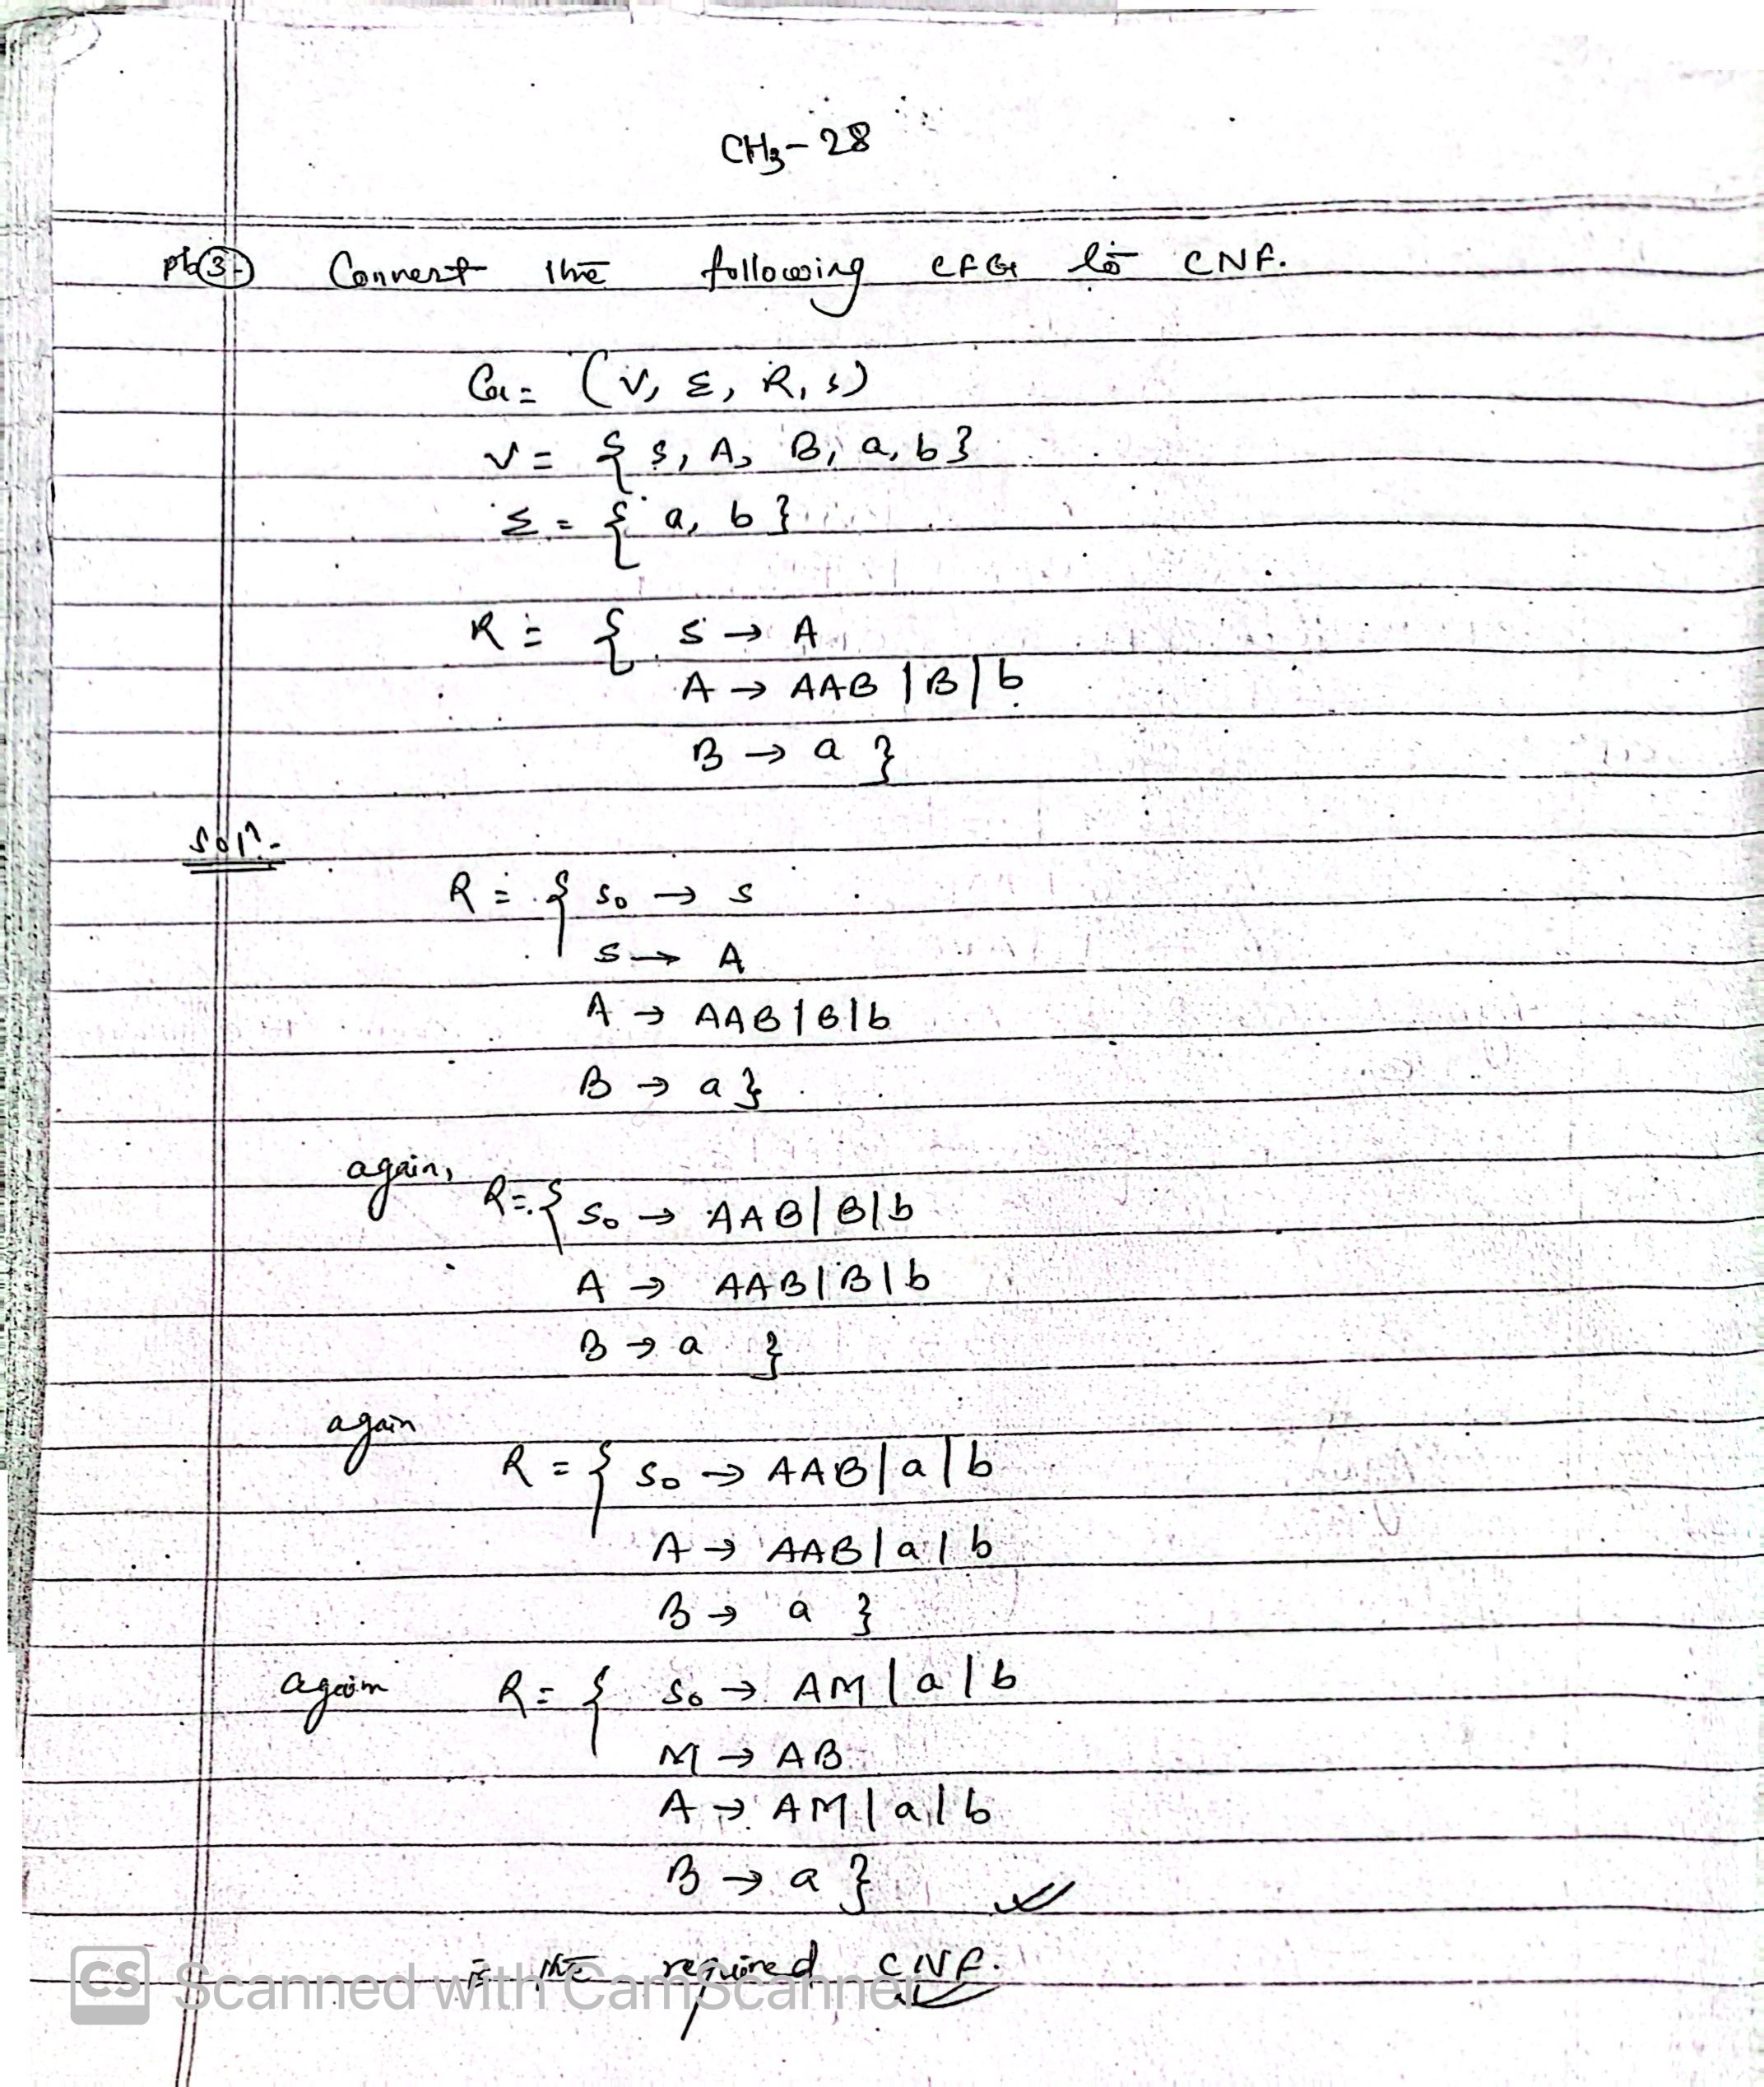 CH3-28
pb(3)- Convert the following CFG to CNF.
G = (V, Σ, R, S)
V = { S, A, B, a, b}
Σ = { a, b }
R = { S → A
A → AAB | B | b
B → a }
Soln.-
R = { S0 → S
S → A
A → AAB | B | b
B → a }
again, R = { S0 → AAB | B | b
A → AAB | B | b
B → a }
again
R = { S0 → AAB | a | b
A → AAB | a | b
B → a }
again R = { S0 → AM | a | b
M → AB
A → AM | a | b
B → a }
is the required CNF.
CS Scanned with CamScanner